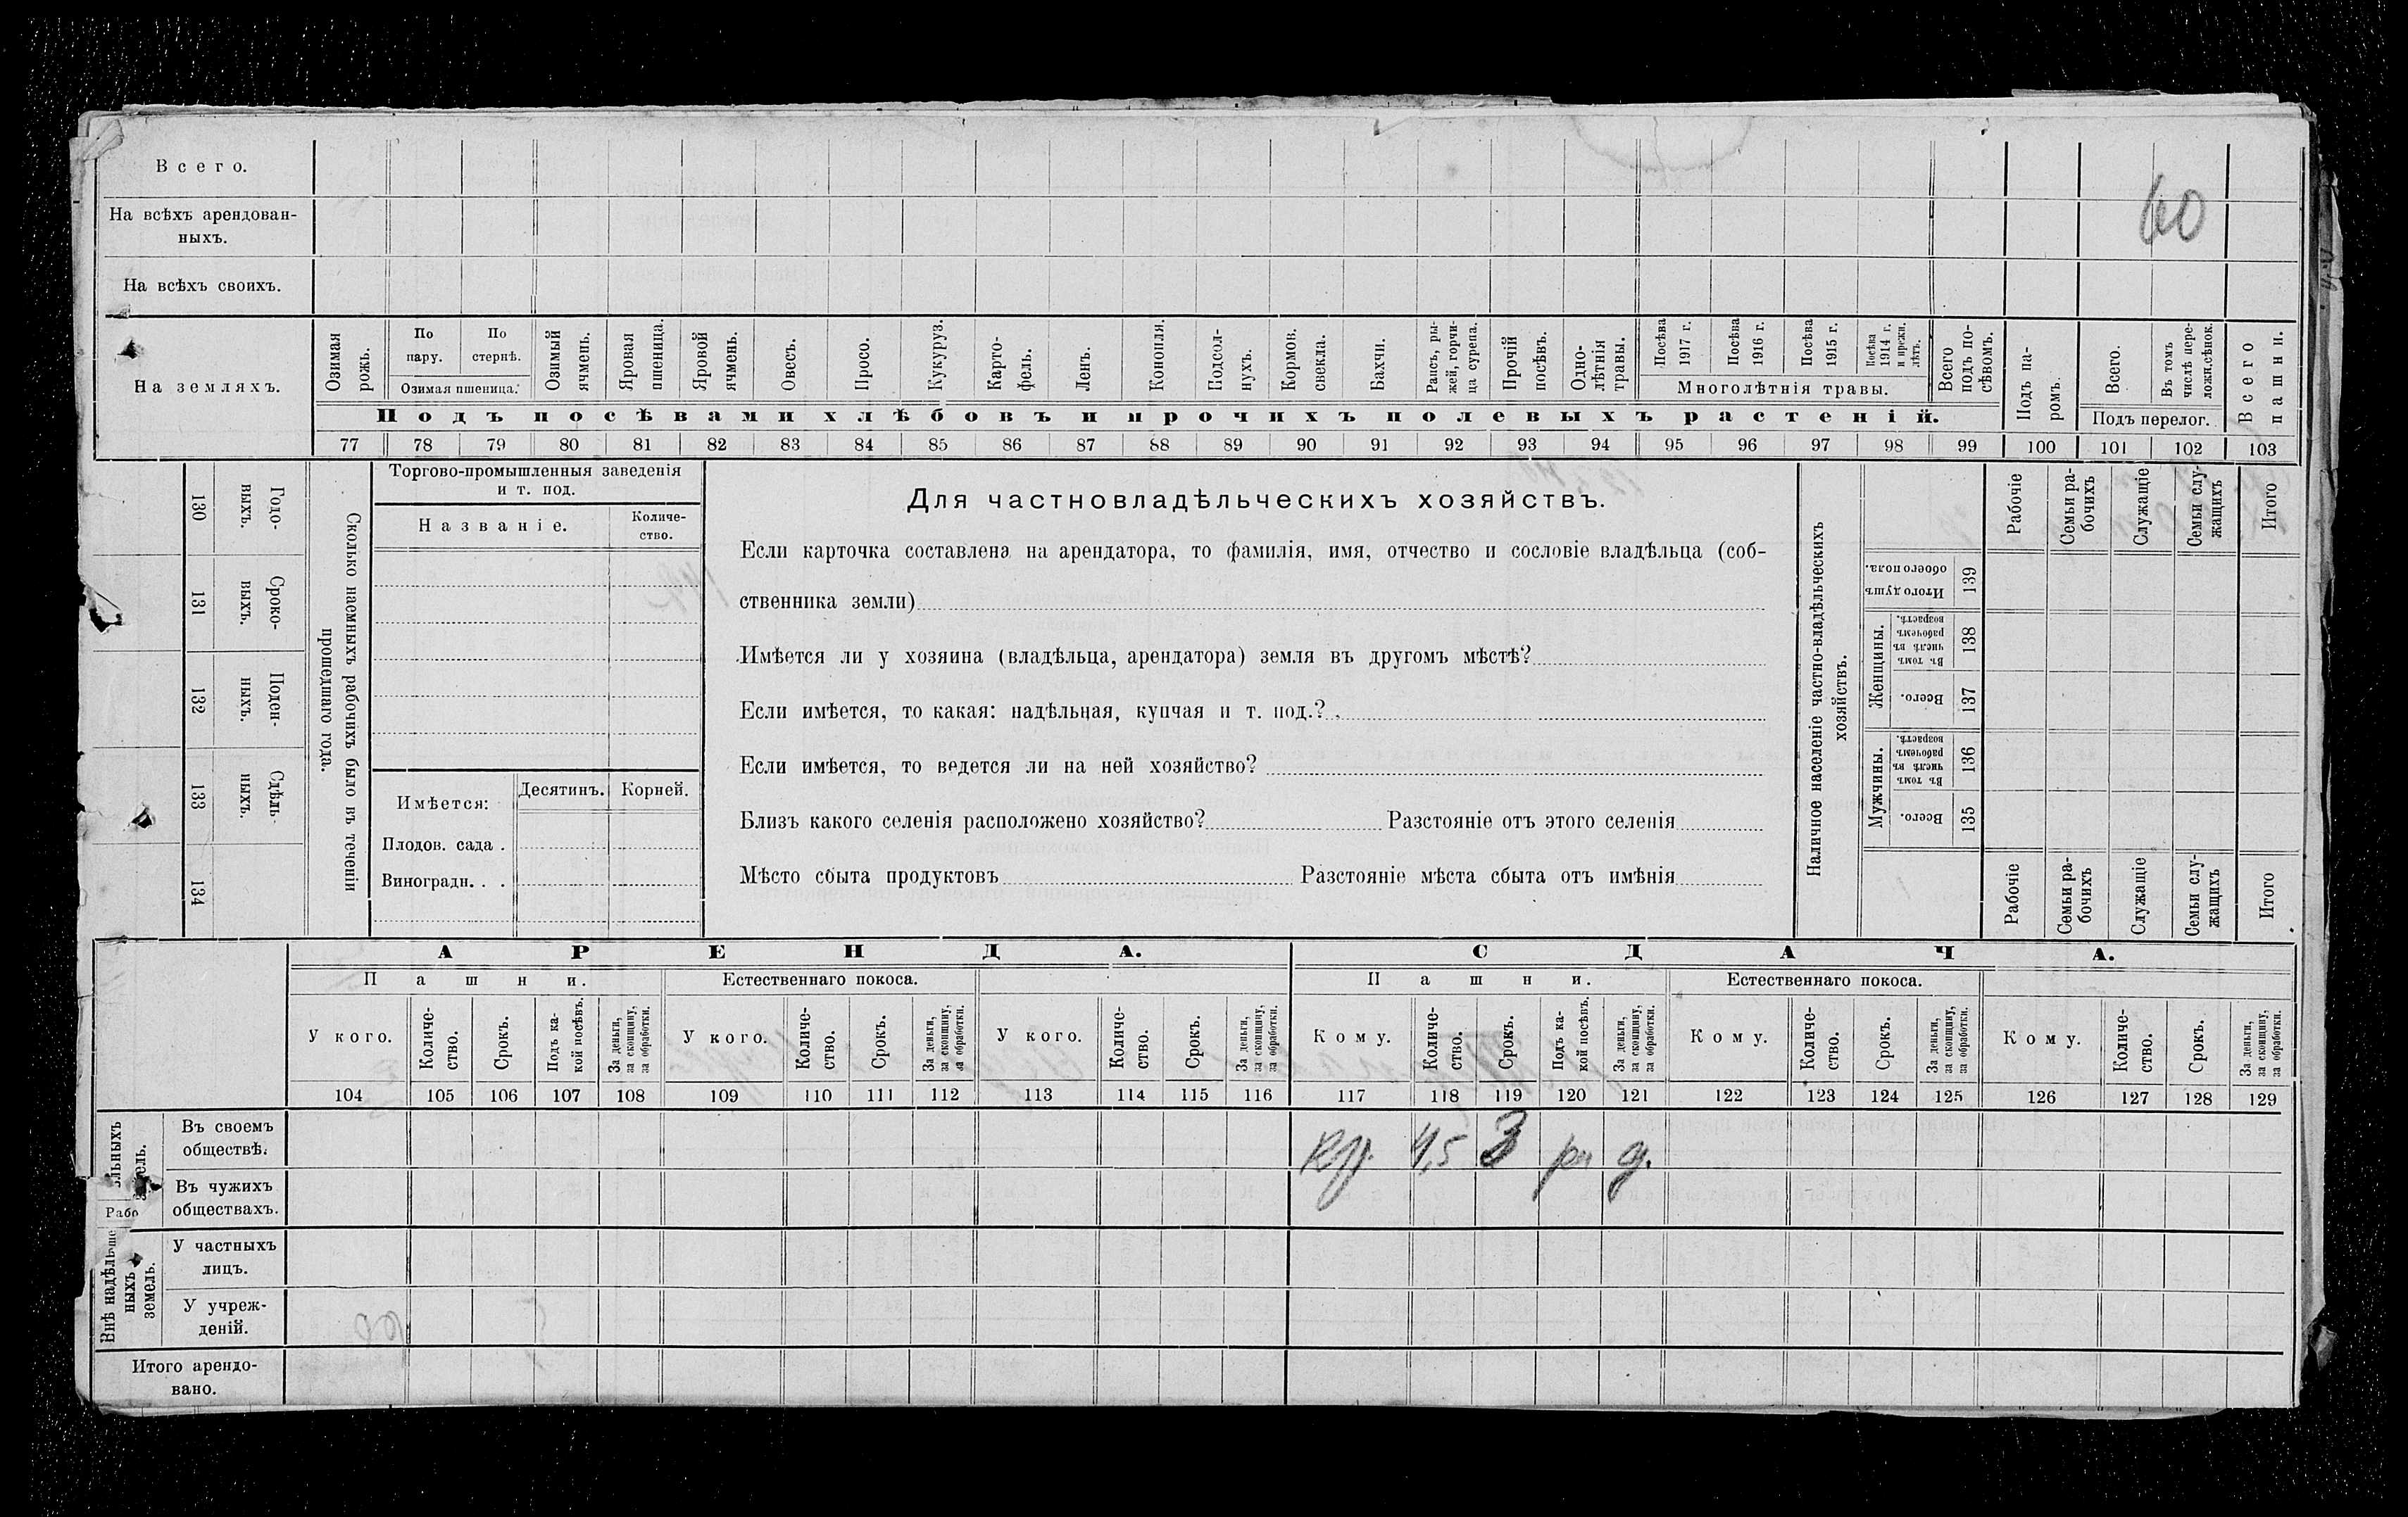 Всего.
60
На всѣхъ арендован-
ныхъ.
На всѣхъ своихъ.
На земляхъ.
Озимая рожь.
По пару.
По стернѣ.
Озимая пшеница.
Озимый ячмень.
Яровая пшеница.
Яровой ячмень.
Овесъ.
Просо.
Кукуруз.
Карто-
фель.
Ленъ.
Конопля.
Подсол-
нухъ.
Кормов. свекла.
Бахчи.
Рапсъ, ры-
жей, горчи-
ца сурепа.
Прочій посѣвъ.
Одно-
лѣтнія травы.
Посѣва 1917 г.
Посѣва 1916 г.
Посѣва 1915 г.
Посѣва 1914 г. и прежн. лѣтъ.
Многолѣтнія травы.
Всего подъ по-
сѣвомъ.
Подъ посѣвами хлѣбовъ и прочихъ полевыхъ растеній.
Подъ па-
ромъ.
Всего.
Въ томъ числѣ пере-
ложн.сѣнок.
Подъ перелог.
Всего пашни.
77 78 79 80 81 82 83 84 85 86 87 88 89 90 91 92 93 94 95 96 97 98 99 100 101 102 103
Годо-
выхъ.
130
Сроко-
выхъ.
131
Поден-
ныхъ.
132
Сдѣль-
ныхъ.
133
134
Сколько наемныхъ рабочихъ было въ теченіи
прошедшаго года.
Торгово-промышленныя заведенія
и т. под.
Названіе.
Количе-
ство.
Имѣется:
Десятинъ.
Корней.
Плодов. сада .
Виноградн. . .
Для частновладѣльческихъ хозяйствъ.
Если карточка составлена на арендатора, то фамилія, имя, отчество и сословіе владѣльца (соб-
ственника земли)
Имѣется ли у хозяина (владѣльца, арендатора) земля въ другомъ мѣстѣ?
Если имѣется, то какая: надѣльная, купчая и т. под.?
Если имѣется, то ведется ли на ней хозяйство?
Близъ какого селенія расположено хозяйство? Разстояніе отъ этого селенія
Мѣсто сбыта продуктовъ Разстояніе мѣста сбыта отъ имѣнія
Наличное населеніе частно-владѣльческихъ
хозяйствъ.
Рабочіе
Семьи ра-
бочихъ
Служащіе
Семьи слу-
жащихъ
Итого
Итого душъ обоего пола.
139
Женщины.
Въ томъ числѣ въ рабочемъ возрастѣ.
138
Всего.
137
Мужчины.
Въ томъ числѣ въ рабочемъ возрастѣ.
136
Всего.
135
Рабочіе
Семьи ра-
бочихъ
Служащіе
Семьи слу-
жащихъ
Итого
АРЕНДА.
СДАЧА.
Пашни.
Естественнаго покоса.
Пашни.
Естественнаго покоса.
У кого.
Количе-
ство.
Срокъ.
Подъ ка-
кой посѣвъ.
За деньги, за скопщину, за обработки.
У кого.
Количе-
ство.
Срокъ.
За деньги, за скопщину, за обработки.
У кого.
Количе-
ство.
Срокъ.
За деньги, за скопщину, за обработки.
Кому.
Количе-
ство.
Срокъ.
Подъ ка-
кой посѣвъ.
За деньги, за скопщину, за обработки.
Кому.
Количе-
ство.
Срокъ.
За деньги, за скопщину, за обработки.
Кому.
Количе-
ство.
Срокъ.
За деньги, за скопщину, за обработки.
104 105 106 107 108 109 110 111 112 113 114 115 116 117 118 119 120 121 122 123 124 125 126 127 128 129
Въ своемъ
обществѣ.
4,5 3 д.
Въ чужихъ
обществахъ.
Внѣ надѣль-
ныхъ
земель.
У частныхъ
лицъ.
У учреж-
деній.
Итого арендо-
вано.